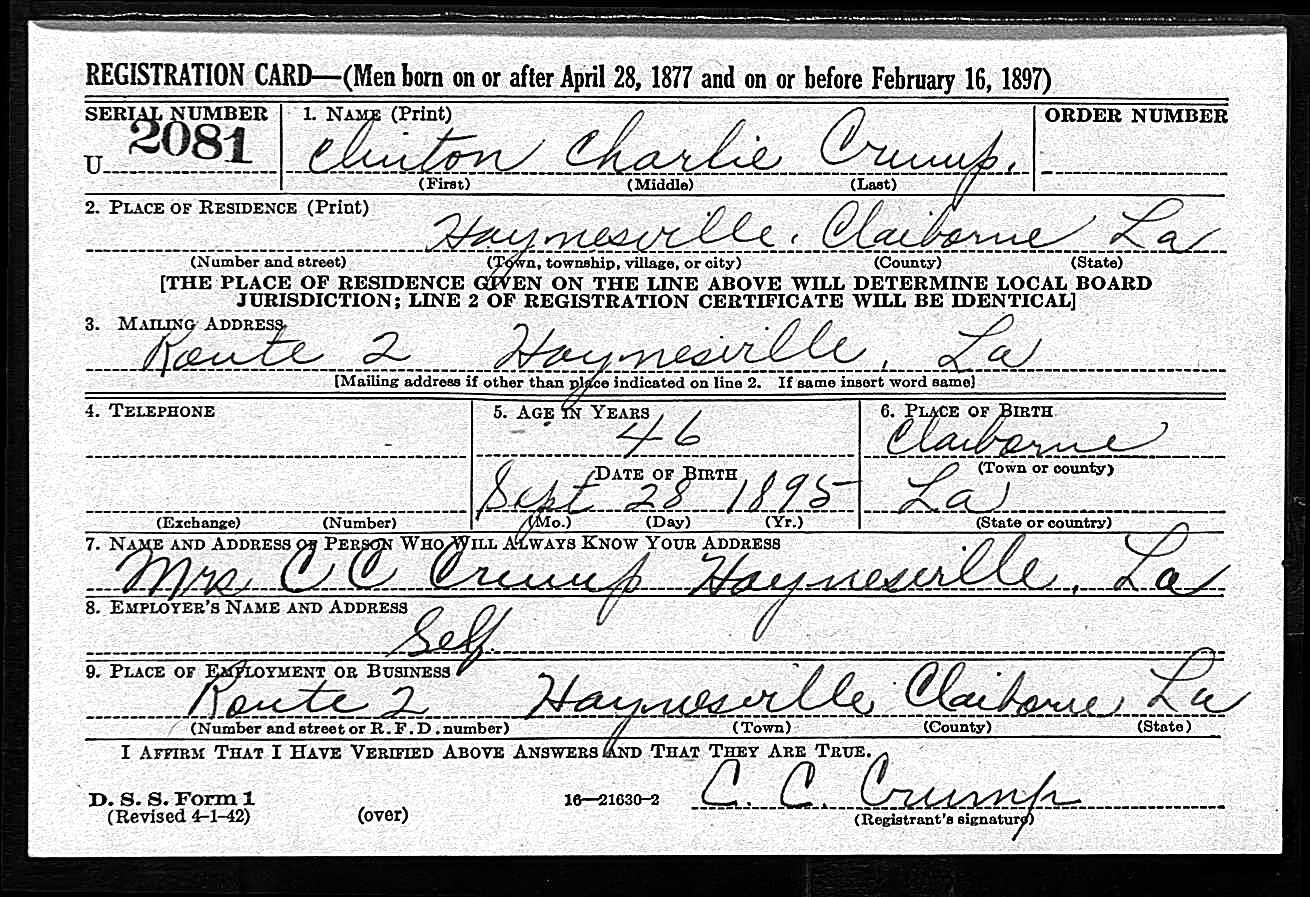 REGISTRATION CARD—(Men born on or after April 28, 1877 and on or before February 16, 1897)
SERIAL NUMBER 1. NAME (Print) ORDER NUMBER
U 2081 Clinton Charlie Crump.
(First) (Middle) (Last)
2. PLACE OF RESIDENCE (Print)
Haynesville, Claiborne La
(Number and street) (Town, township, village, or city) (County) (State)
[THE PLACE OF RESIDENCE GIVEN ON THE LINE ABOVE WILL DETERMINE LOCAL BOARD
JURISDICTION; LINE 2 OF REGISTRATION CERTIFICATE WILL BE IDENTICAL]
3. MAILING ADDRESS
Route 2 Haynesville, La
[Mailing address if other than place indicated on line 2. If same insert word same]
4. TELEPHONE 5. AGE IN YEARS 6. PLACE OF BIRTH
46 Claiborne
DATE OF BIRTH (Town or county)
Sept 28 1895 La
(Exchange) (Number) (Mo.) (Day) (Yr.) (State or country)
7. NAME AND ADDRESS OF PERSON WHO WILL ALWAYS KNOW YOUR ADDRESS
Mrs C C Crump Haynesville, La
8. EMPLOYER'S NAME AND ADDRESS
Self.
9. PLACE OF EMPLOYMENT OR BUSINESS
Route 2 Haynesville, Claiborne, La
(Number and street or R. F. D. number) (Town) (County) (State)
I AFFIRM THAT I HAVE VERIFIED ABOVE ANSWERS AND THAT THEY ARE TRUE.
C. C. Crump
D. S. S. Form 1 16—21630-2
(Revised 4-1-42) (over) (Registrant's signature)